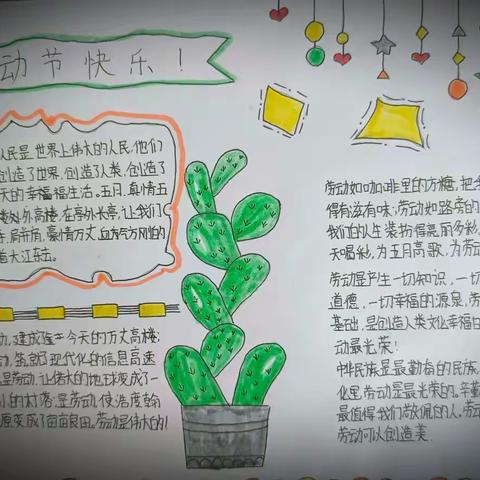 动节快乐!
人民是世界上伟大的人民,他们
创造了世界,创造了人类,创造了
天的幸福福生活。五月,真情五
楼外外高楼,在亭外长亭,让我们
肩并肩,豪情万丈,血方气方风的
着大江东去。
建成座今天的万丈高楼;
筑就了现代化的信息高速
是劳动,让伟大的地球变成了一
的村落;是劳动使浩度翰
原变成了亩亩良田。劳动是伟大的!
劳动如咖啡里的方糖,把
得有滋有味,劳动如路旁的
我们的人生装扮得美丽多彩,
天喝彩,为五月高歌,为劳
劳动是产生一切知识,一切
道德,一切幸福的源泉,劳
基础,是创造人类文化幸福
动最光荣!
中华民族是最勤劳的民族,
化是劳动是最光荣的。辛勤
最值得我们敬佩的人。劳动
劳动可以创造美